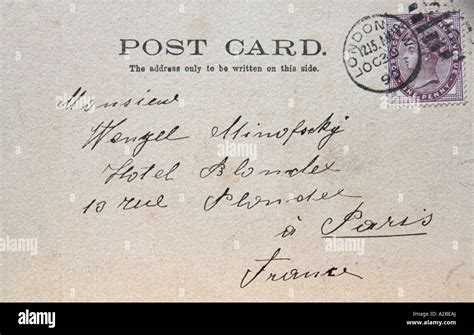 POST CARD.
The address only to be written on this side.
LONDON
12.15.AM
OC 2
9
Monsieur
Wenzel Minofsky
Hotel Blondel
10 rue Blondel
à Paris
France
alamy
Image ID: A2BEAJ
www.alamy.com